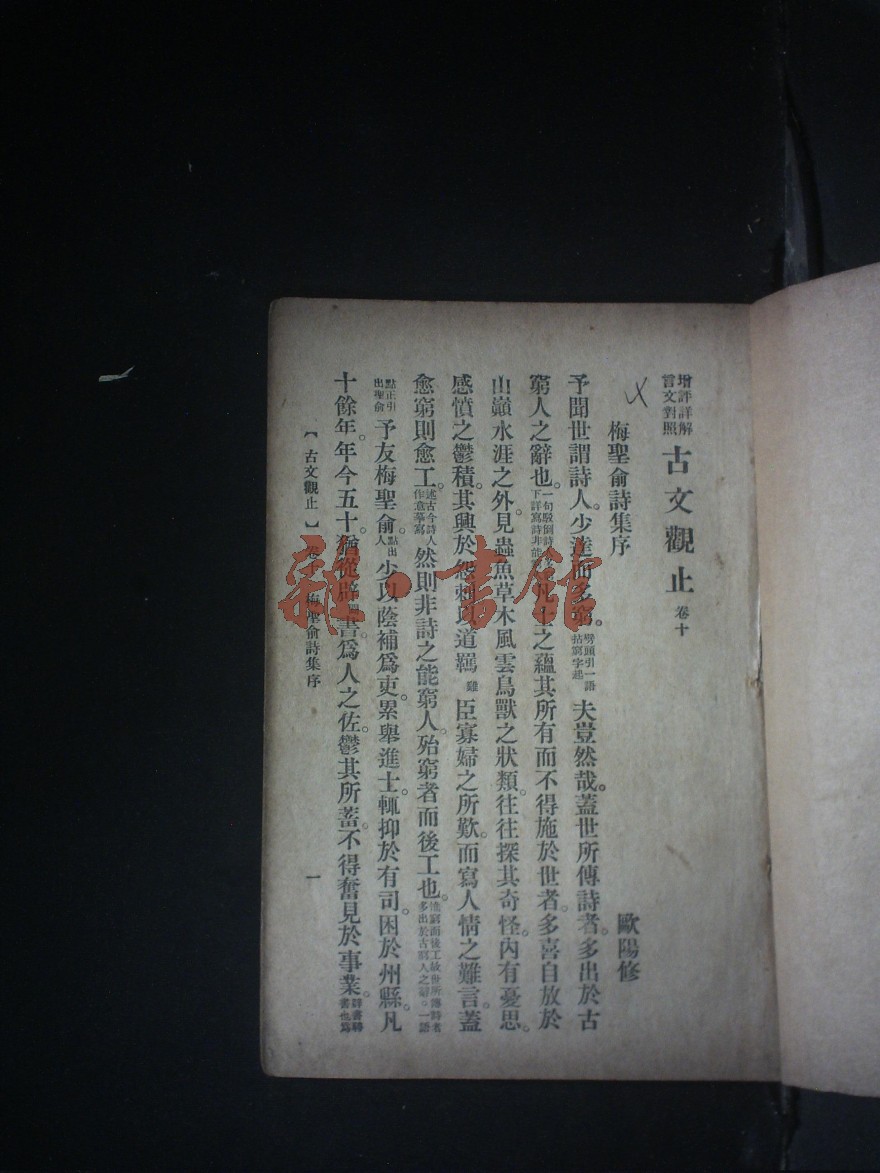 增評詳解
言文對照
古文觀止 卷十
梅聖俞詩集序 歐陽修
予聞世謂詩人。少達而多窮。劈頭引一語拈窮字起夫豈然哉。蓋世所傳詩者。多出於古
窮人之辭也。一句駁倒詩下詳寫詩非能凡士之蘊其所有而不得施於世者。多喜自放於
山巓水涯之外。見蟲魚草木風雲鳥獸之狀類。往往探其奇怪。內有憂思
感憤之鬱積。其興於怨刺。以道羈臣寡婦之所歎。而寫人情之難言。蓋
愈窮則愈工。述古今詩人作意摹寫然則非詩之能窮人。殆窮者而後工也。惟窮而後工故世所傳詩者多出於古窮人之辭。一語
點正引出聖俞予友梅聖俞。點出人少以蔭補爲吏。累舉進士。輒抑於有司。困於州縣。凡
十餘年。年今五十。猶從辟書。爲人之佐。鬱其所蓄。不得奮見於事業。辟書聘書也爲
【古文觀止】卷十 梅聖俞詩集序 一
雜·書館